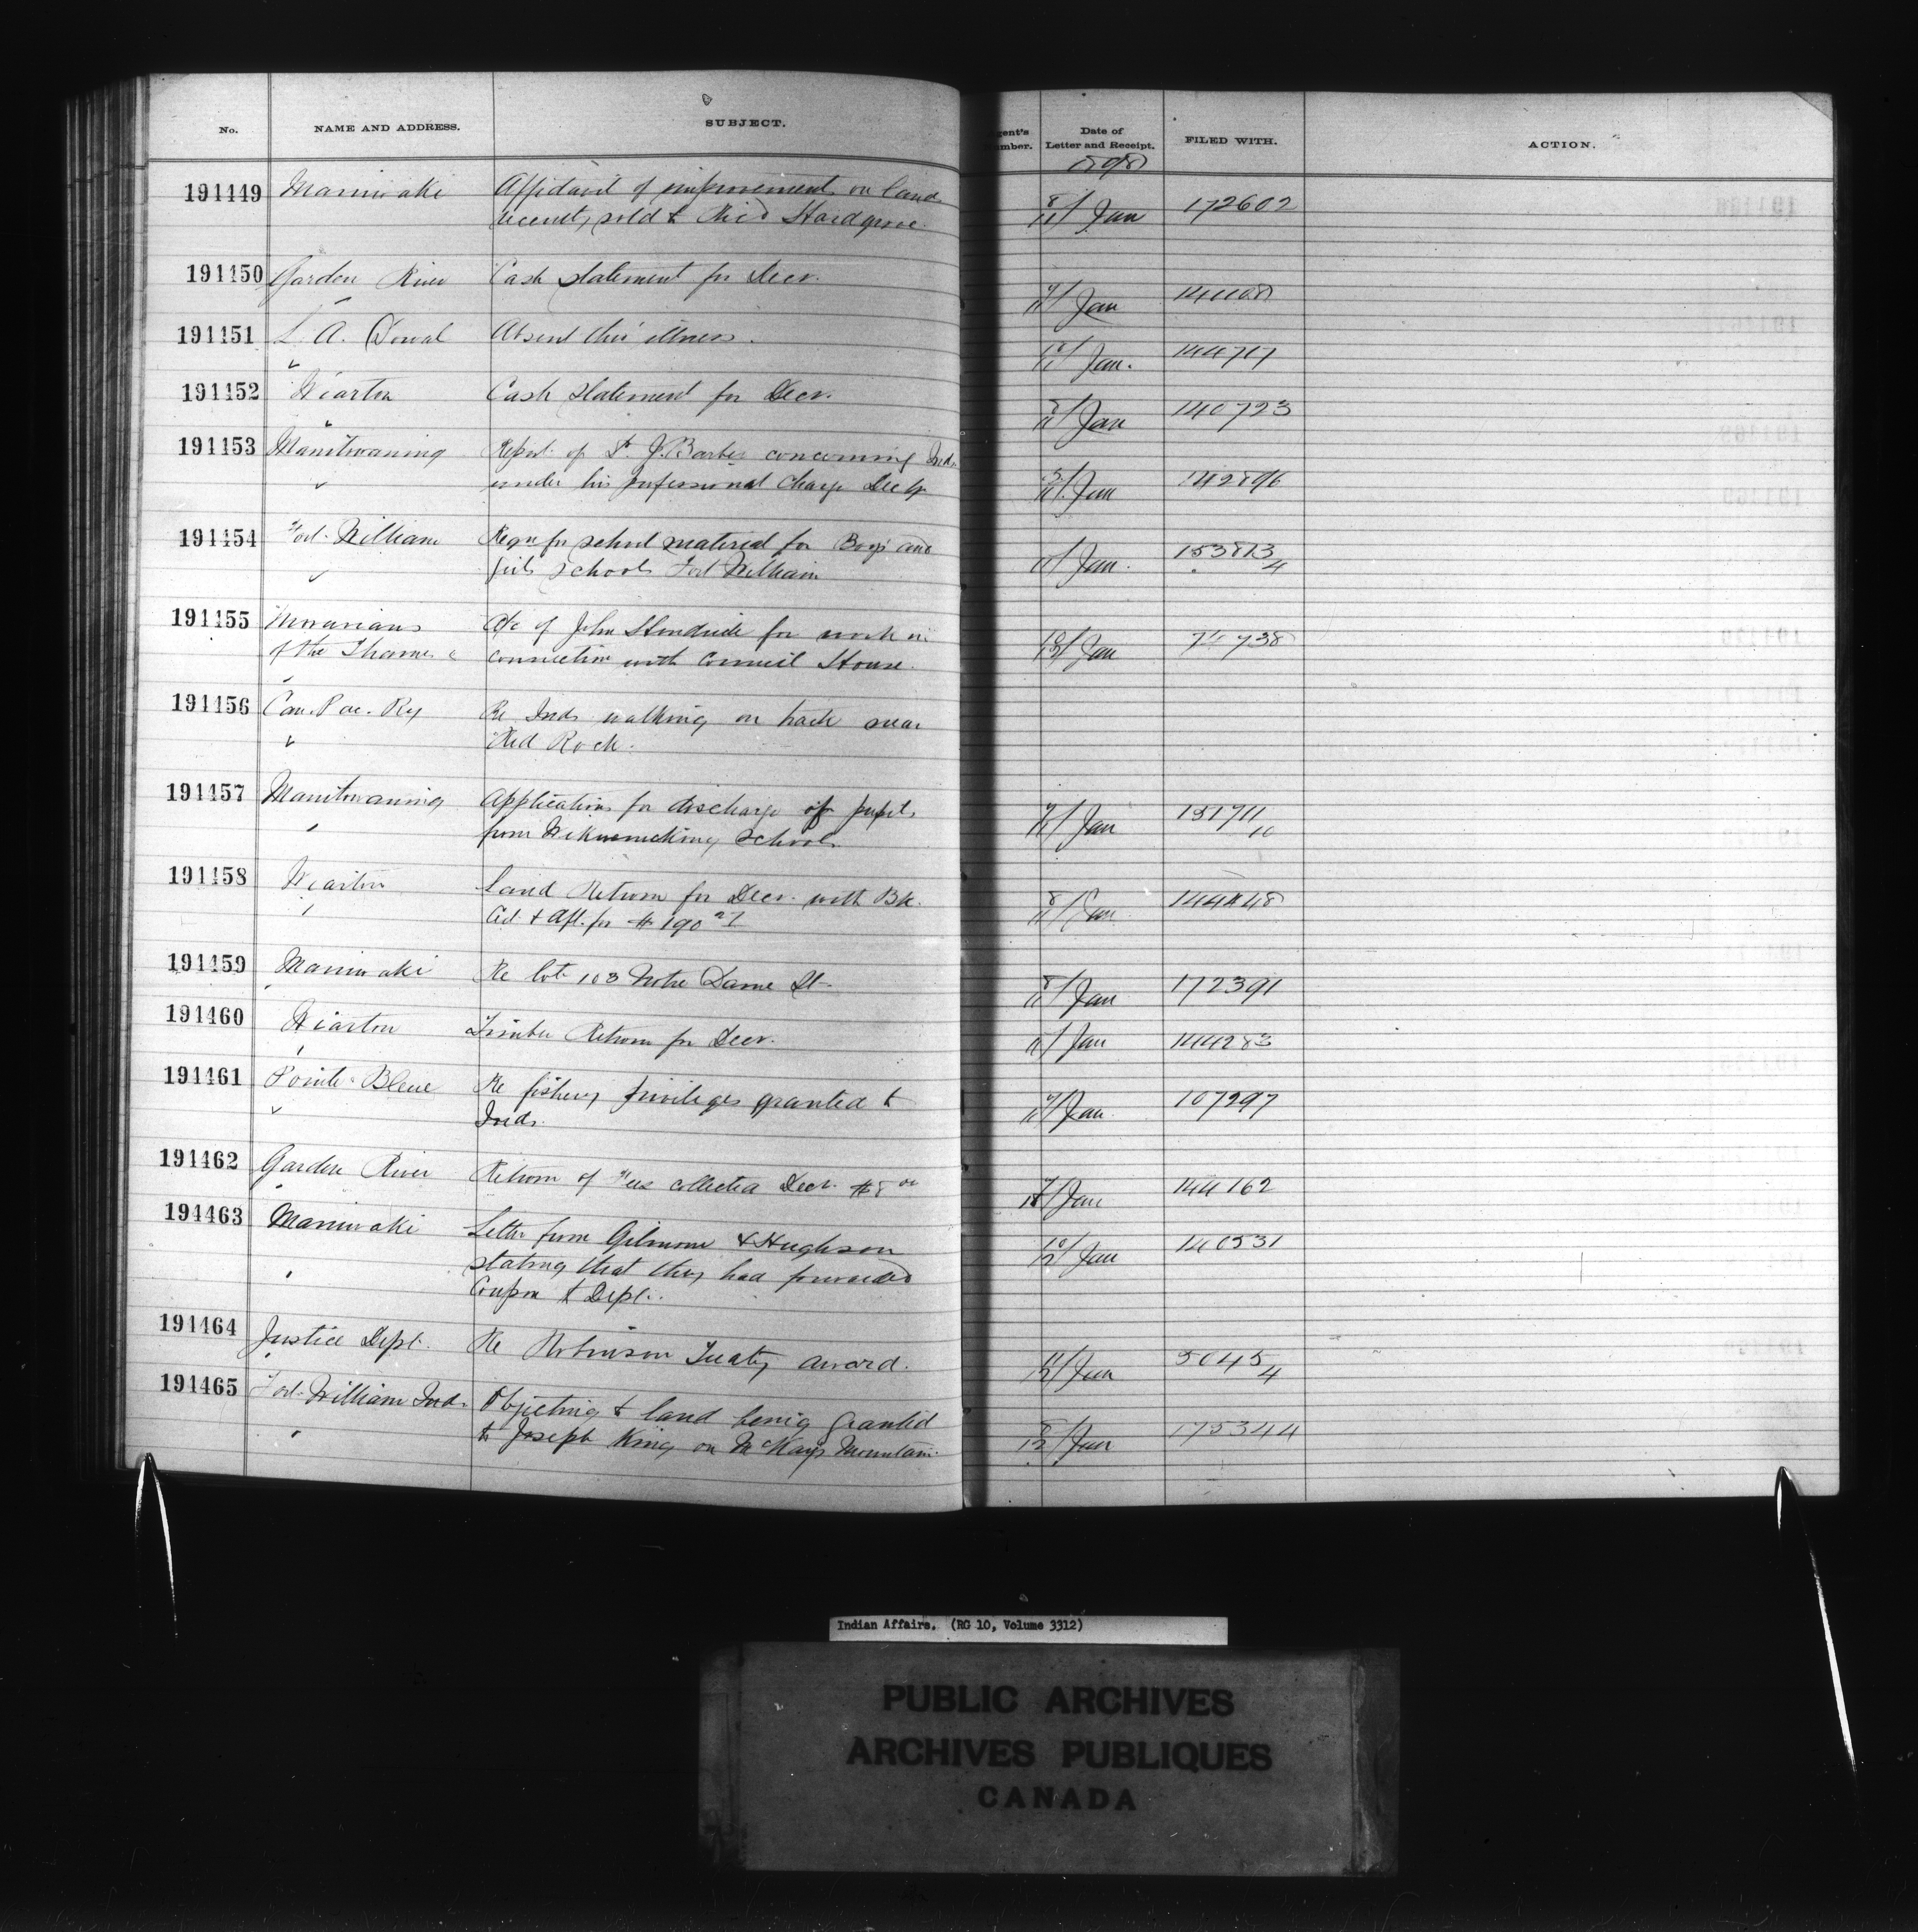 No. NAME AND ADDRESS. SUBJECT. Agent's Number. Date of Letter and Receipt. FILED WITH. ACTION.
1898
191449 Maniwaki Affidavit of improvements on land 8/11 Jan 172602
recently sold to Ric'd Hardgrove
191450 Garden River Cash statement for Decr. 7/11 Jan 141108
191451 L. A. Dorval Absent thro' illness. 10/11 Jan. 144717
191452 Wiarton Cash Statement for Decr. 8/11 Jan 140723
191453 Manitowaning Report of Dr. J. Barber concerning Inds. Jan 142896
under his professional charge Dec
191454 Fort William Reqn for school material for Boys and Jan. 153813
girls Schools Fort William 4
191455 Moravians a/c of John for work in Jan 74738
of the Thames connection with Council House.
191456 Can. Pac. Ry Re Inds walking on track near
Red Rock.
191457 Manitowaning Applications for discharge of pupils 7/11 Jan 151711
from Wikwemikong Schools 10
191458 Wiarton Land Return for Decr. with Bk. 8/11 Jan 144448
Cd. & Aff. for $190
191459 Maniwaki Re lot 103 Notre Dame St 8/11 Jan 172391
191460 Wiarton Timber Return for Decr. Jan 144283
191461 Pointe Bleue Re fishery privileges granted to Jan 107297
Inds.
191462 Garden River Return of Fees collected Decr. $8 00 Jan 144162
191463 Maniwaki Letter from Gilmour & Hughson 10/12 Jan 140531
stating that they had forwarded
Coupon to Dept.
191464 Justice Dept. Re Robinson Treaty award. 11/12 Jan 5045
4
191465 Fort William Inds. Objecting to land being granted 8/12 Jan 175344
to Joseph King on McKays Mountain.
Indian Affairs. (RG 10, Volume 3312)
PUBLIC ARCHIVES
ARCHIVES PUBLIQUES
CANADA